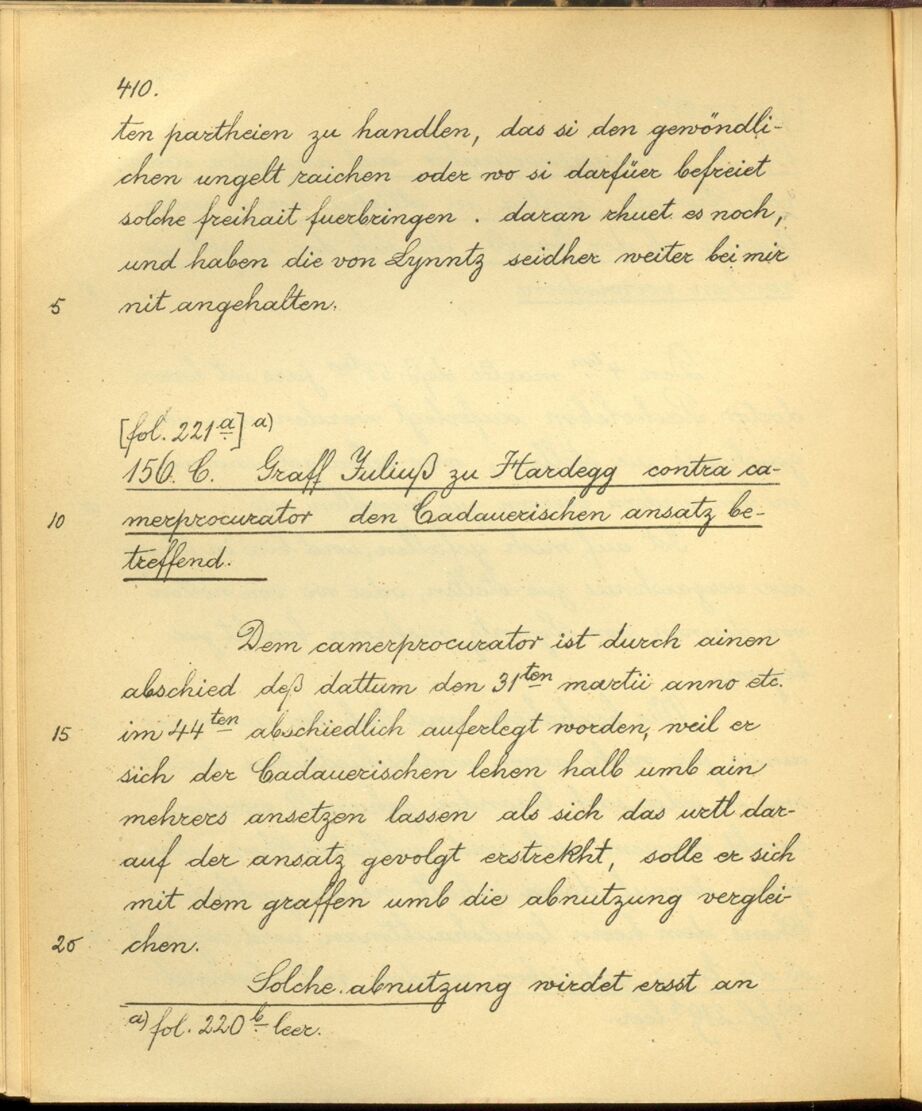 410.
ten partheien zu handlen, das si den gewöndli-
chen ungelt raichen oder wo si darfüer befreiet
solche freihait fuerbringen. daran rhuet es noch,
und haben die von Lynntz seidher weiter bei mir
5 nit angehalten.
[fol. 221a] a)
156. C. Graff Juliuß zu Hardegg contra ca-
10 merprocurator den Cadauerischen ansatz be-
treffend.
Dem camerprocurator ist durch ainen
abschied deß dattum den 31ten martii anno etc.
15 im 44ten abschiedlich auferlegt worden, weil er
sich der Cadauerischen lehen halb umb ain
mehrers ansetzen lassen als sich das urtl dar-
auf der ansatz gevolgt erstrekht, solle er sich
mit dem graffen umb die abnutzung verglei-
20 chen.
Solche abnutzung wirdet ersst an
a) fol. 220b leer.